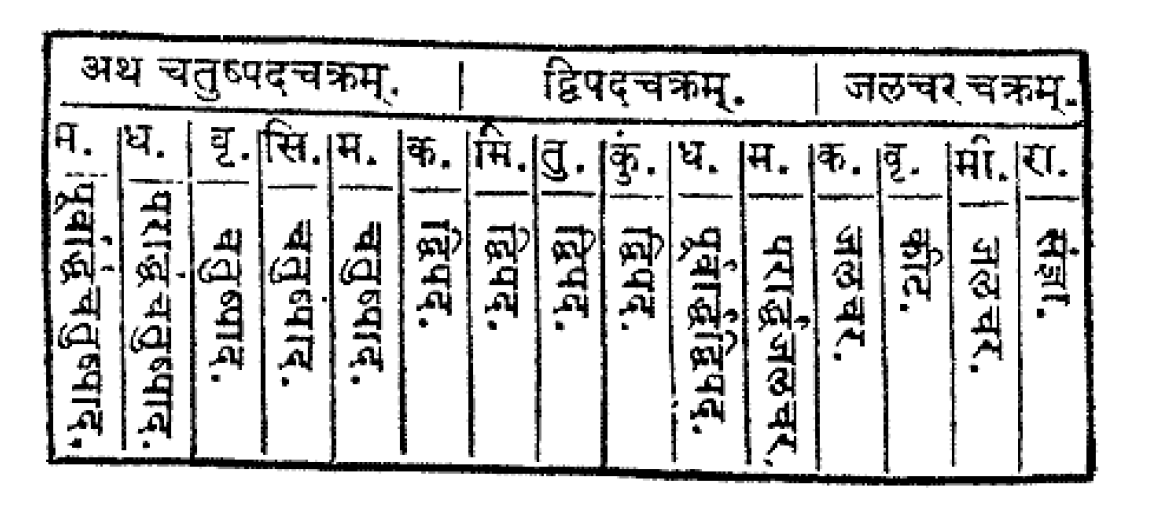 अथ चतुष्पदचक्रम्. | द्विपदचक्रम्. | जलचर चक्रम्.
म. ध. वृ. सि. म. क. मि. तु. कुं. ध. म. क. वृ. मी. रा.
पूर्वार्द्ध चतुष्पाद.
परार्द्ध चतुष्पाद.
चतुष्पाद.
चतुष्पाद.
चतुष्पाद.
द्विपद.
द्विपद.
द्विपद.
द्विपद.
पूर्वार्द्धद्विपद.
परार्द्धजलचर.
जलचर.
कीट.
जलचर.
संज्ञा.